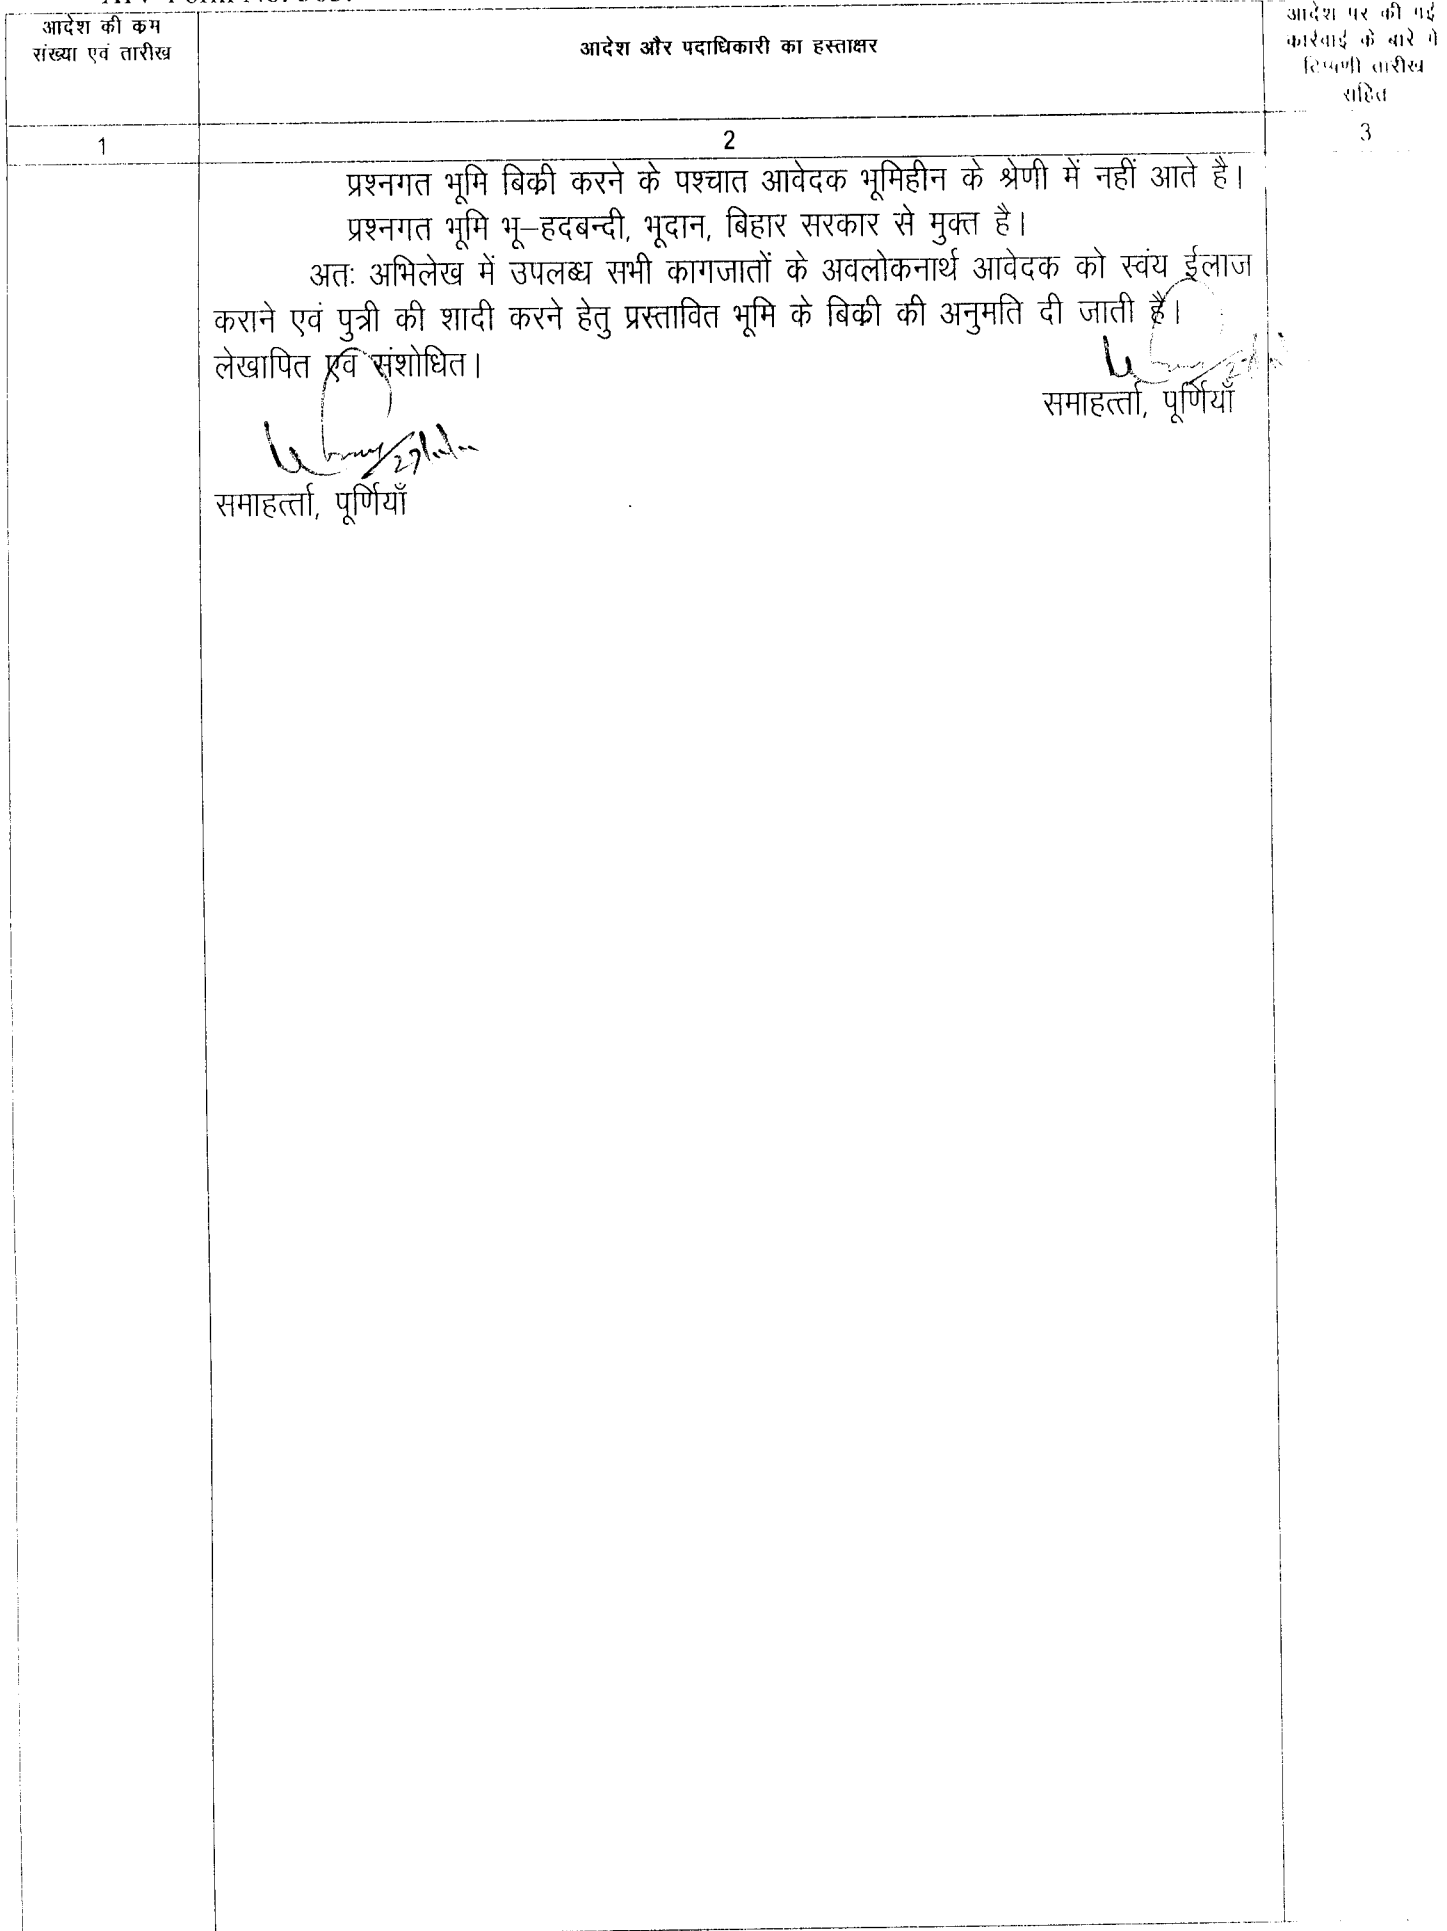 आदेश की कम
संख्या एवं तारीख
आदेश और पदाधिकारी का हस्ताक्षर
आदेश पर की गई
कार्रवाई के बारे में
टिप्पणी तारीख
सहित
1
2
3
प्रश्नगत भूमि बिक्री करने के पश्चात आवेदक भूमिहीन के श्रेणी में नहीं आते है।
प्रश्नगत भूमि भू–हदबन्दी, भूदान, बिहार सरकार से मुक्त है।
अतः अभिलेख में उपलब्ध सभी कागजातों के अवलोकनार्थ आवेदक को स्वंय ईलाज
कराने एवं पुत्री की शादी करने हेतु प्रस्तावित भूमि के बिक्री की अनुमति दी जाती है।
लेखापित एवं संशोधित।
समाहर्त्ता, पूर्णियाँ
समाहर्त्ता, पूर्णियाँ